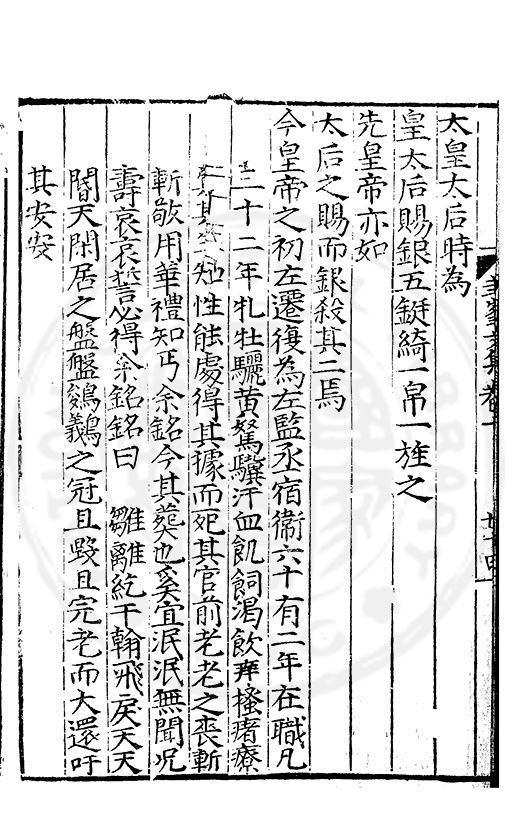 太皇太后時為
皇太后賜銀五鋌綺一帛一旌之
先皇帝亦如
太后之賜而銀殺其二焉
今皇帝之初左遷復為左監丞宿衛六十有二年在職凡
二十二年牝牡驪黄駑驥汗血飢飼渴飲痒搔瘏療
知性能處得其據而死其官前老老之喪斬
斬敬用華禮知丐余銘今其葬也奚宜泯泯無聞況
壽哀哀誓必得余銘銘曰 雝雝紇干翰飛戾天天
閽天閑居之盤盤鵔鸃之冠且毀且完老而大還吁
其安安